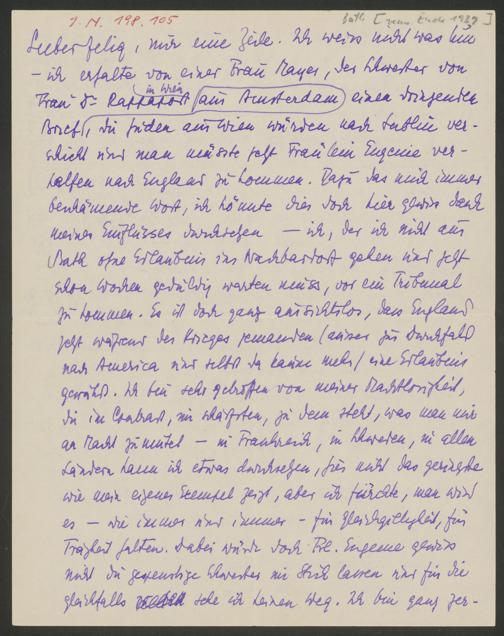 I. N. 198.105
Bath [zwen Ende 1939]
Lieber Felix, nur eine Zeile. Ich weiss nicht was tun
– ich erhalte von einer Frau Mayer, der Schwester von
Frau Dr Rappaport in Wien aus Amsterdam einen dringenden
Brief, die Juden aus Wien würden nach Lublin ver-
schickt und man müsste jetzt Fräulein Eugenie ver-
helfen nach England zu kommen. Dazu das mich immer
beschämende Wort, ich könnte dies doch hier gewiss dank
meines Einflusses durchsetzen – ich, der ich nicht aus
Bath ohne Erlaubnis ins Nachbardorf gehen und jetzt
schon Wochen geduldig warten muss, vor ein Tribunal
zu kommen. Es ist doch ganz aussichtslos, dass England
jetzt während des Krieges jemanden (ausser zur Durchfahrt
nach America und selbst da kaum mehr) eine Erlaubnis
gewährt. Ich bin sehr getroffen von meiner Machtlosigkeit,
die im Contrast, im schärfsten, zu dem steht, was man mir
an Macht zumutet – in Frankreich, in Schweden, in allen
Ländern kann ich etwas durchsetzen, hier nicht das geringste
wie mein eigenes Exempel zeigt, aber ich fürchte, man wird
es – wie immer und immer – für Gleichgiltigkeit, für
Trägheit halten. Dabei würde doch Frl. Eugenie gewiss
nicht die Schwester im Stich lassen und für die
gleichfalls sehe ich keinen Weg. Ich bin ganz zer-